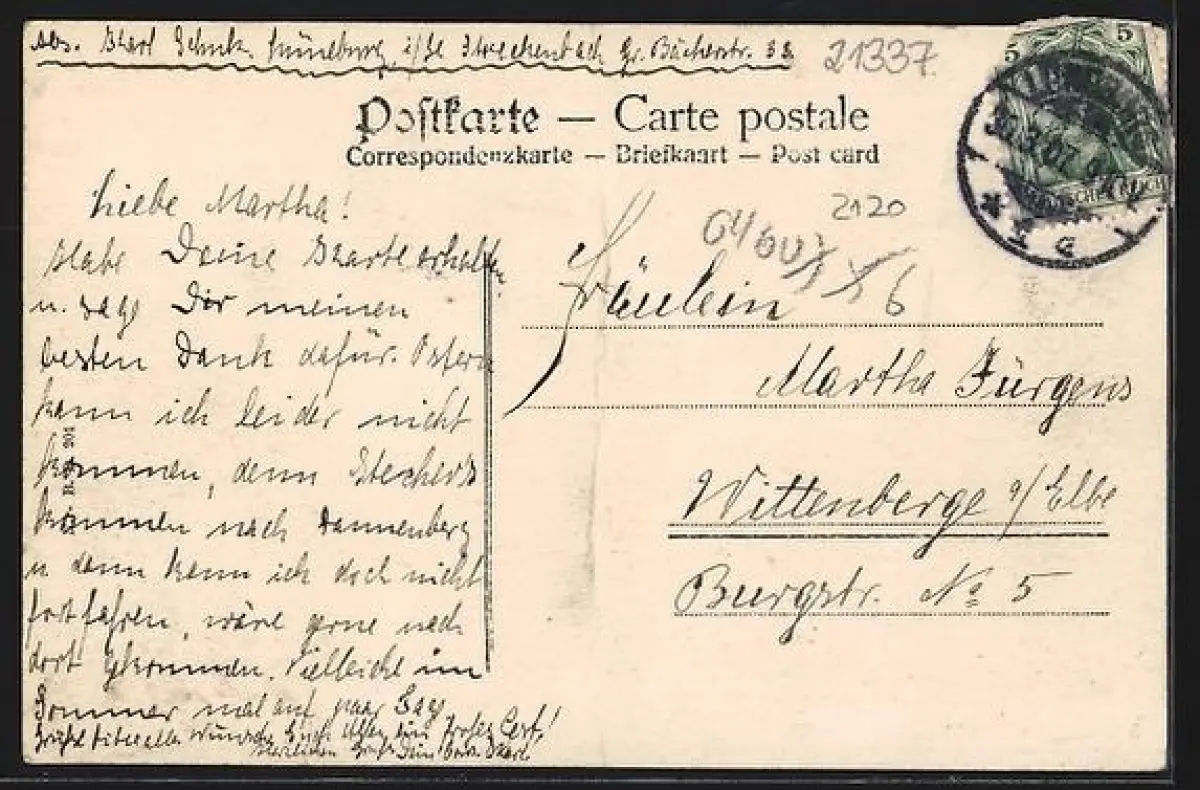 Abs. Karl Schuk. Lüneburg, Gr. Bäckerstr. 32
21337.
Postkarte — Carte postale
Correspondenzkarte — Briefkaart — Post card
5 5
07
2120
6
Liebe Martha!
Habe Deine Karte erhalten
u. sage Dir meinen
besten Dank dafür. Ostern
kann ich leider nicht
kommen, denn Stecher's
kommen nach Dannenberg
u dann kann ich doch nicht
fortfahren, wäre gerne nach
dort gekommen. Vielleicht im
Sommer mal auf paar Tage
Grüße bitte alle. Wünsche Euch allen ein
herzlichen Gruß Dein Karl
Fräulein
Martha Jürgens
Wittenberge a/Elbe
Burgstr. No 5